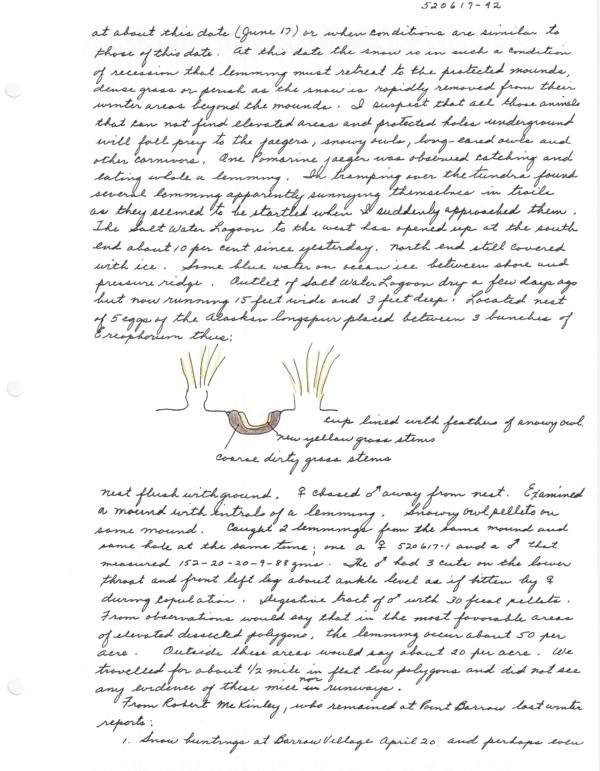 520617-42
at about this date (June 17) or when conditions are similar to
those of this date. At this date the snow is in such a condition
of recession that lemming must retreat to the protected mounds,
dense grass or perish as the snow is rapidly removed from their
winter areas beyond the mounds. I suspect that all those animals
that can not find elevated areas and protected holes underground
will fall prey to the jaegers, snowy owls, long-eared owls and
other carnivors. One Pomarine jaeger was observed catching and
eating whole a lemming. In tramping over the tundra found
several lemming apparently sunnying themselves in trails
as they seemed to be startled when I suddenly approached them.
The Salt Water Lagoon to the west has opened up at the south
end about 10 per cent since yesterday. North end still covered
with ice. Some blue water on ocean ice between shore and
pressure ridge. Outlet of Salt Water Lagoon dry a few days ago
but now running 15 feet wide and 3 feet deep! Located nest
of 5 eggs of the Alaskan longspur placed between 3 bunches of
Eriophorum thus:
cup lined with feathers of snowy owl.
new yellow grass stems
coarse dirty grass stems
nest flush with ground. ♀ chased ♂ away from nest. Examined
a mound with entrals of a lemming. Snowy owl pellets on
same mound. Caught 2 lemmings from the same mound and
same hole at the same time; one a ♀ 520617-1 and a ♂ that
measured 152-20-20-9-88 gms. The ♂ had 3 cuts on the lower
throat and front left leg about ankle level as if bitten by ♀
during copulation. Digestive tract of ♂ with 30 fecal pellets.
From observations would say that in the most favorable areas
of elevated dissected polygons, the lemming occur about 50 per
acre. Outside these areas would say about 20 per acre. We
travelled for about 1/2 mile in flat low polygons and did not see
any evidence of these mice nor runways.
From Robert McKinley, who remained at Point Barrow last winter
reports:
1. Snow buntings at Barrow Village April 20 and perhaps even